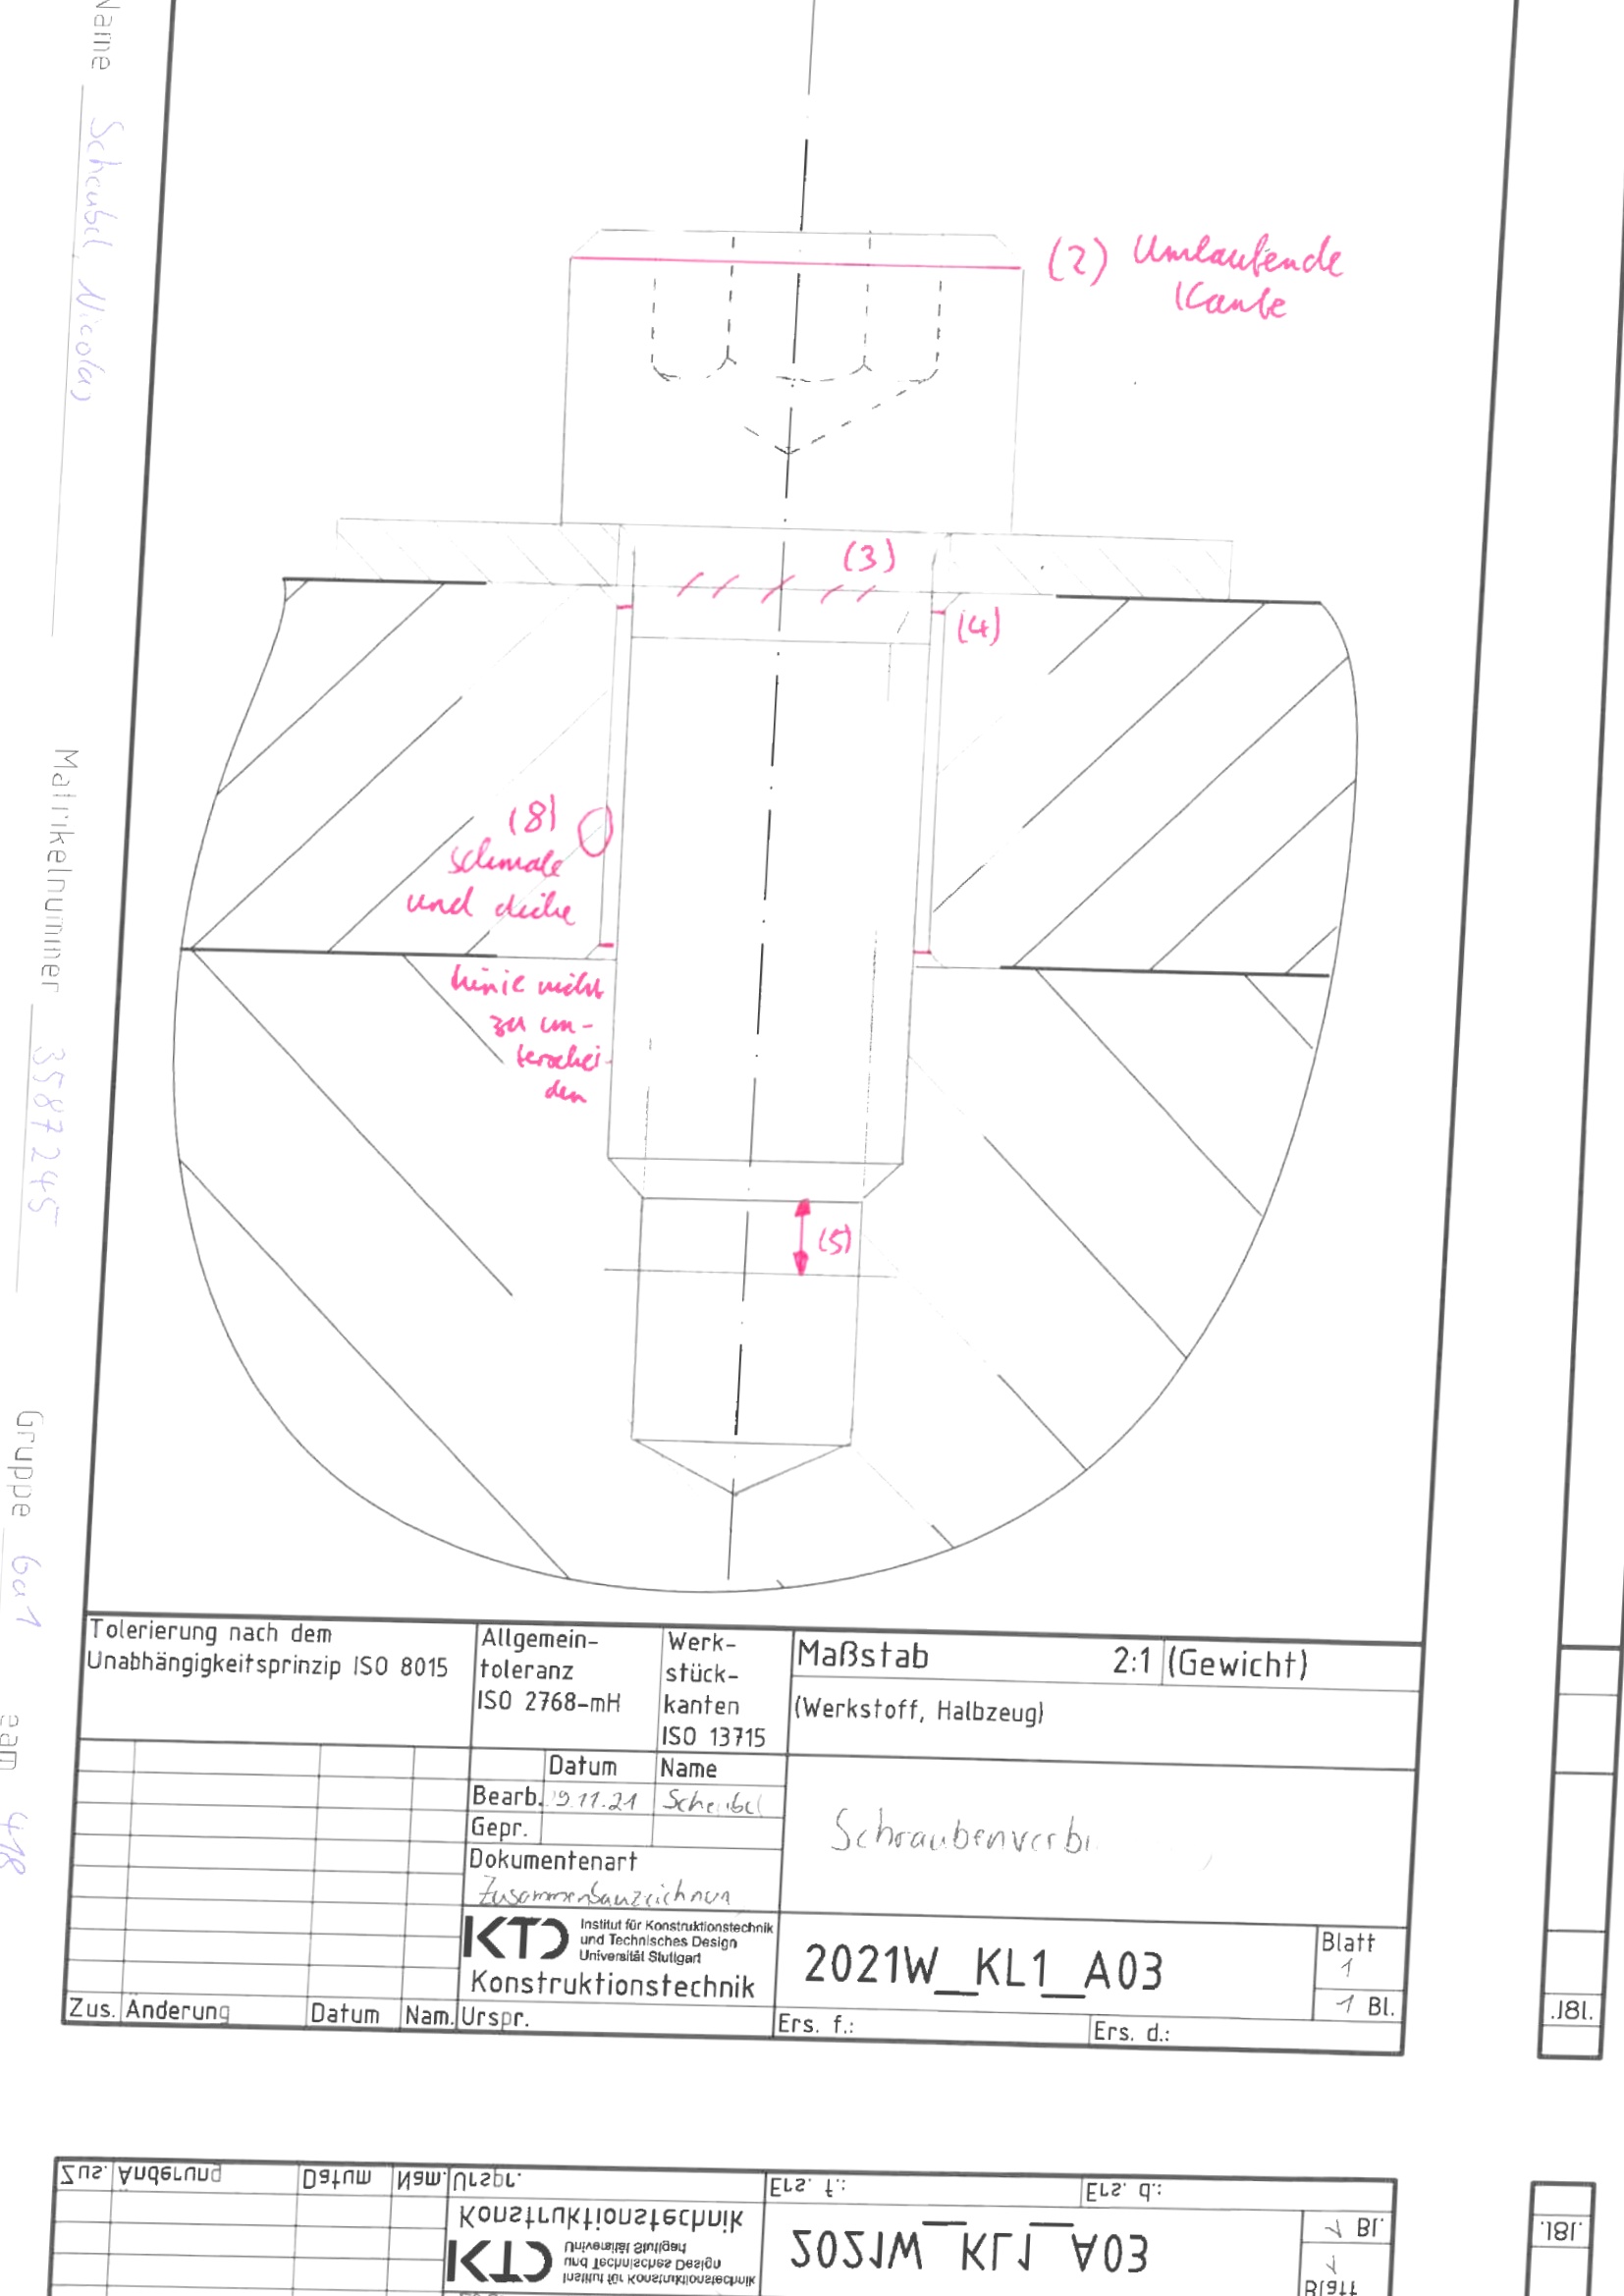 Name Scheubel, Nicolas
Matrikelnummer 3587245
Gruppe 6a1
(2) Umlaufende
Kante
(3)
(4)
(8)
schmale
und dicke
Linie nicht
zu un-
terschei-
den
(5)
Tolerierung nach dem
Unabhängigkeitsprinzip ISO 8015
Allgemein-
toleranz
ISO 2768-mH
Werk-
stück-
kanten
ISO 13715
Maßstab 2:1 (Gewicht)
(Werkstoff, Halbzeug)
Datum Name
Bearb. 9.11.21 Scheubel
Gepr.
Dokumentenart
Zusammenbauzeichnun
Schraubenverbi
KTD Institut für Konstruktionstechnik
und Technisches Design
Universität Stuttgart
Konstruktionstechnik
2021W_KL1_A03
Blatt
1
1 Bl.
Zus. Änderung Datum Nam. Urspr. Ers. f.: Ers. d.:
Zus. Änderung Datum Nam. Urspr. Ers. f.: Ers. d.:
Konstruktionstechnik
2021W_KL1_A03
1 Bl.
KTD Universität Stuttgart
und Technisches Design
Institut für Konstruktionstechnik
1
Blatt